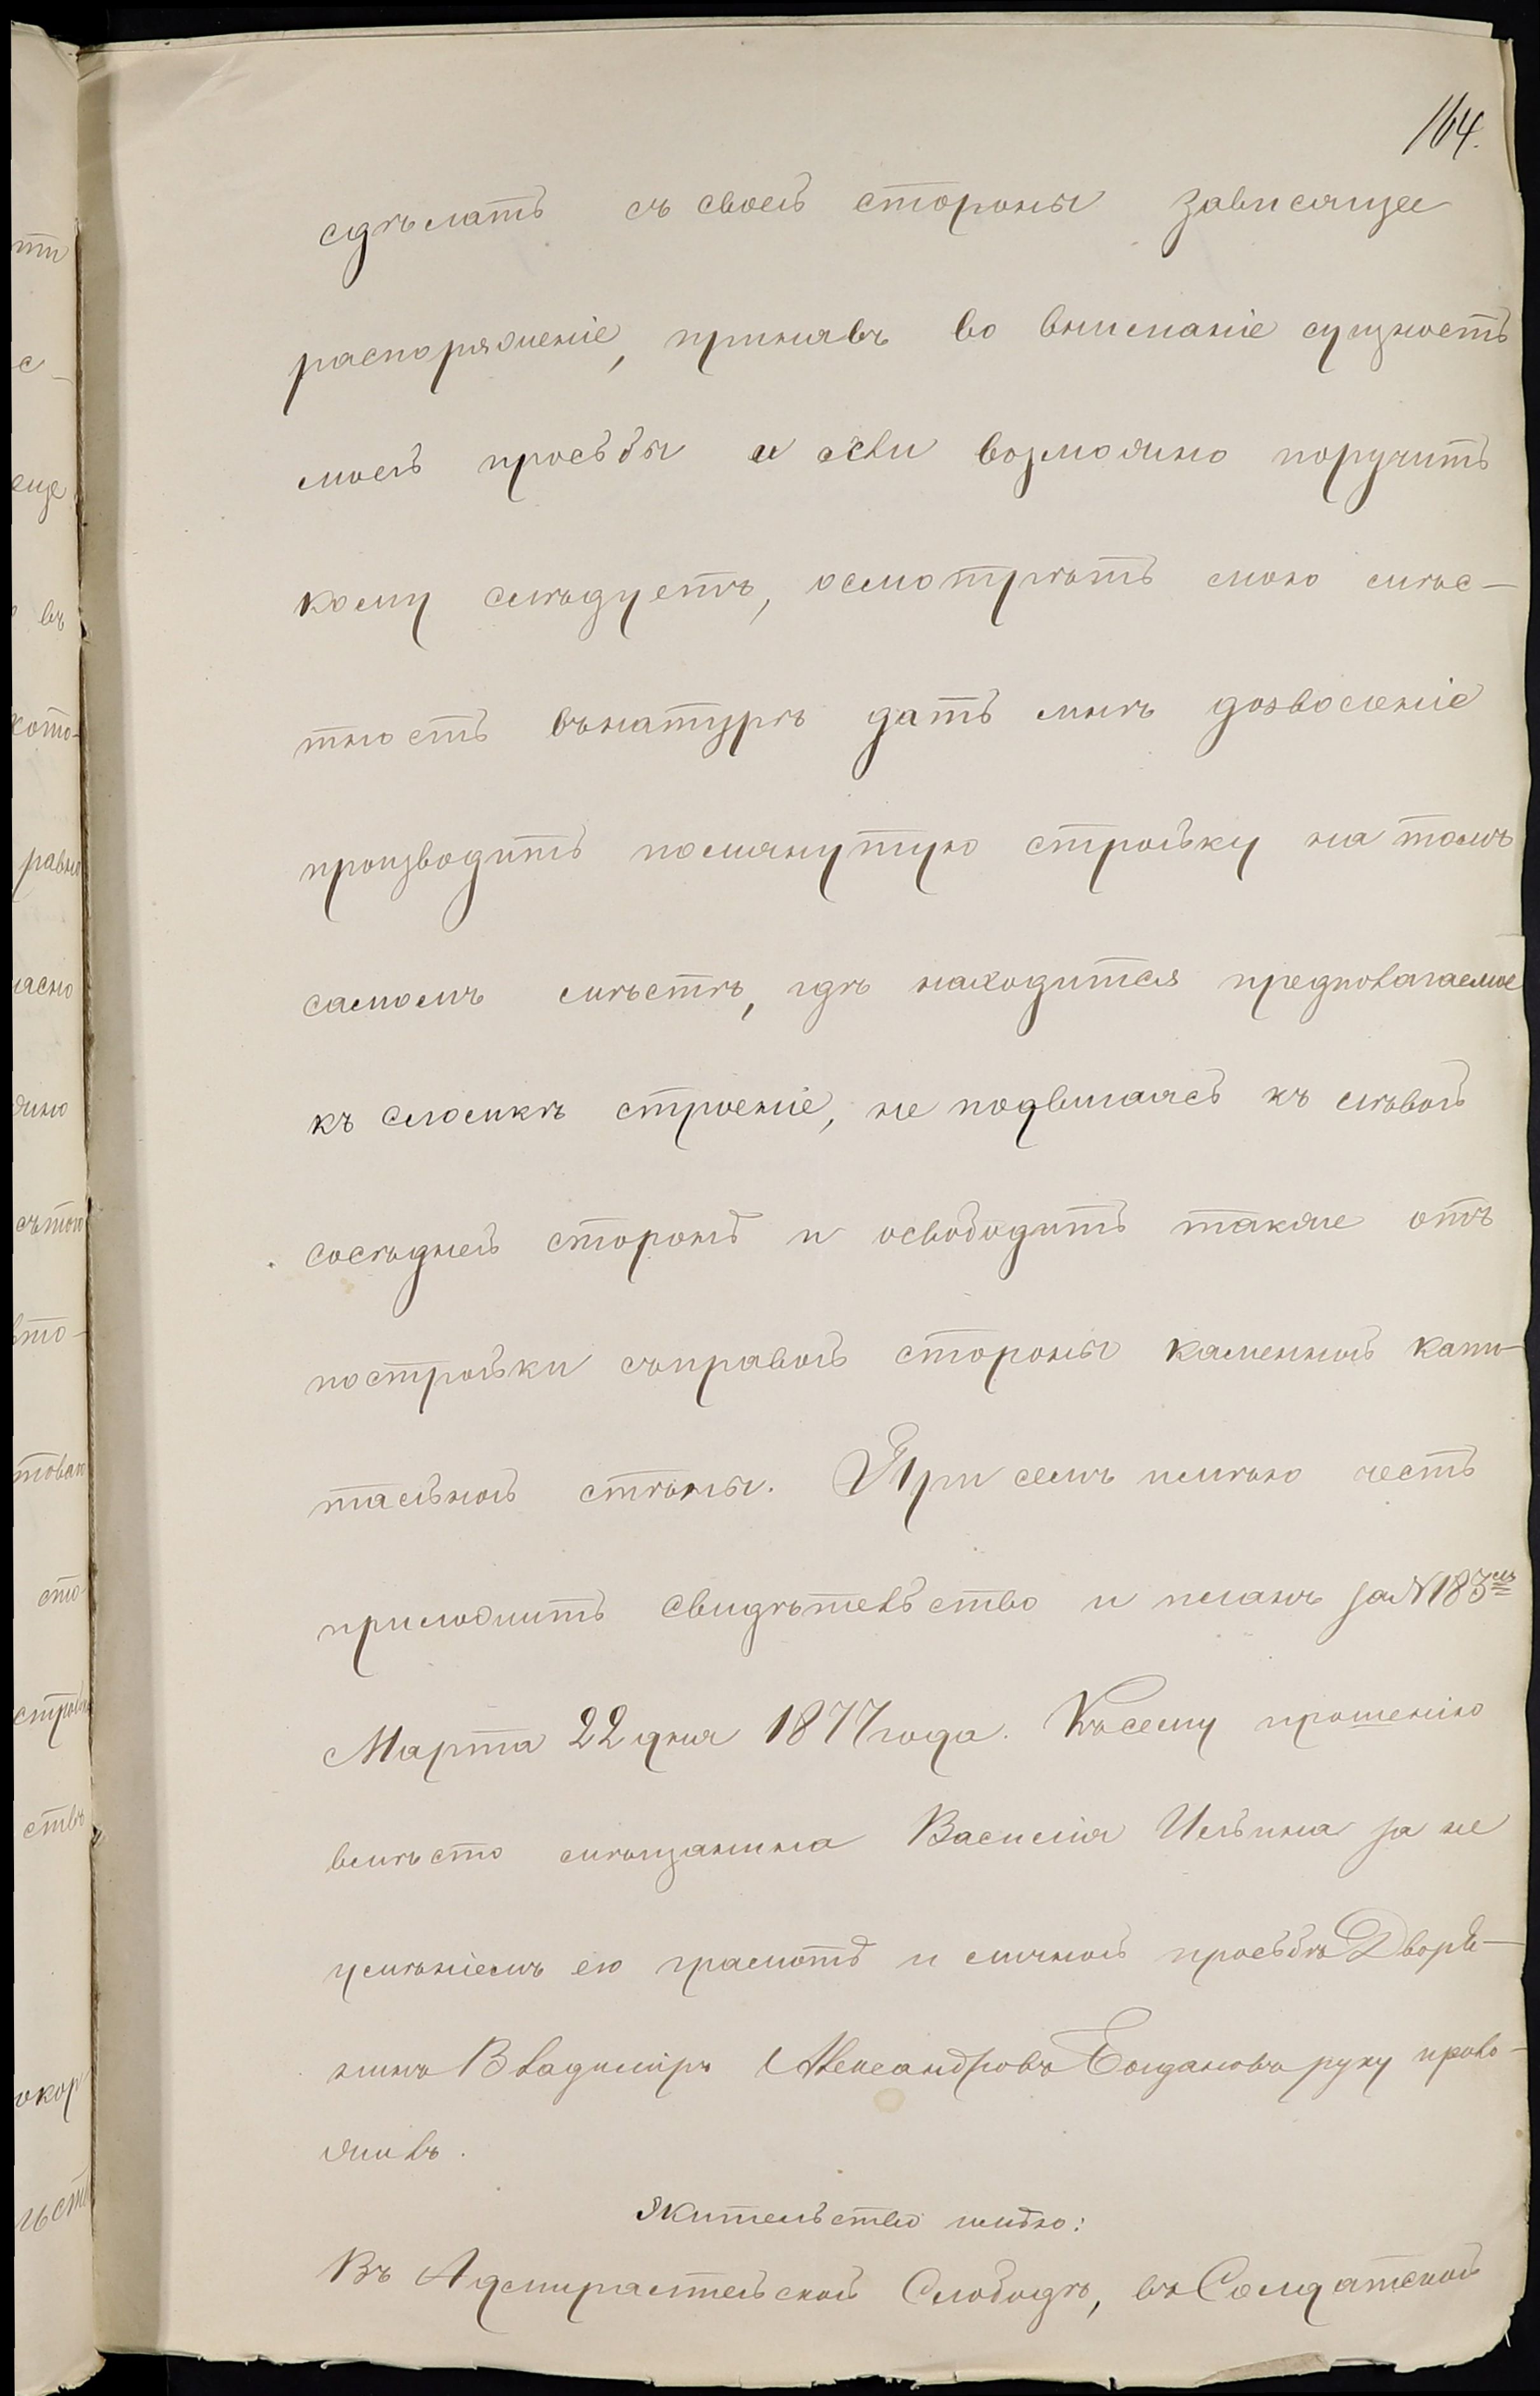 164.
сдѣлать съ своей стороны зависящее
распоряженіе, принявъ во вниманіе сущность
моей просьбы и если возможно поручить
кому слѣдуетъ, осмотрѣть мою мѣс-
тность въ натурѣ дать мнѣ дозволеніе
производить помянутую стройку на томъ
самомъ мѣстѣ, гдѣ находится предполагаемое
къ сломкѣ строеніе, не подвигаясь къ лѣвой
сосѣдней сторонѣ и освободить также отъ
постройки съ правой стороны каменной капи-
тальной стѣны. При семъ имѣю честь
приложить свидѣтельство и планъ за № 183мъ
Марта 22 дня 1877 года. Къ сему прошенію
вмѣсто мѣщанина Василія Ильина за не
умѣніемъ его грамотѣ и личной просьбѣ Дворя-
нинъ Владиміръ Александровъ Богдановъ руку прило-
жилъ.
Жительство имѣю:
Въ Адмиралтейской Слободѣ, въ Солдатской
ти
с-
еще
въ
кото-
равно
ласно
жно
сътою
вто-
сто
строй
ствѣ
окор